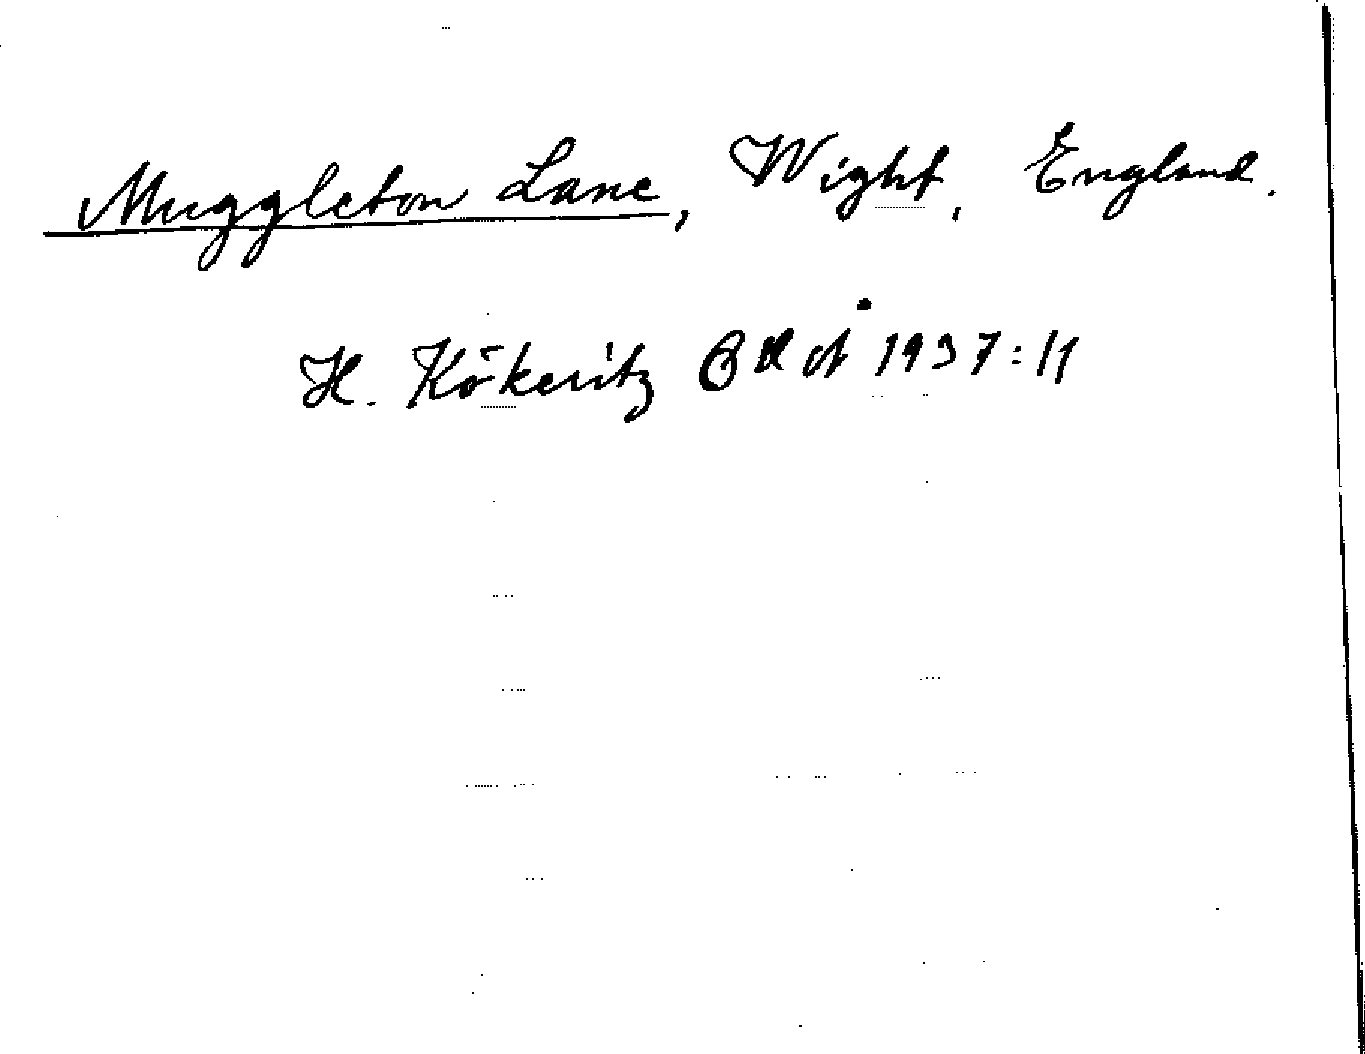 Muggleton Lane, Wight, England.
H. Kökeritz 1937:11